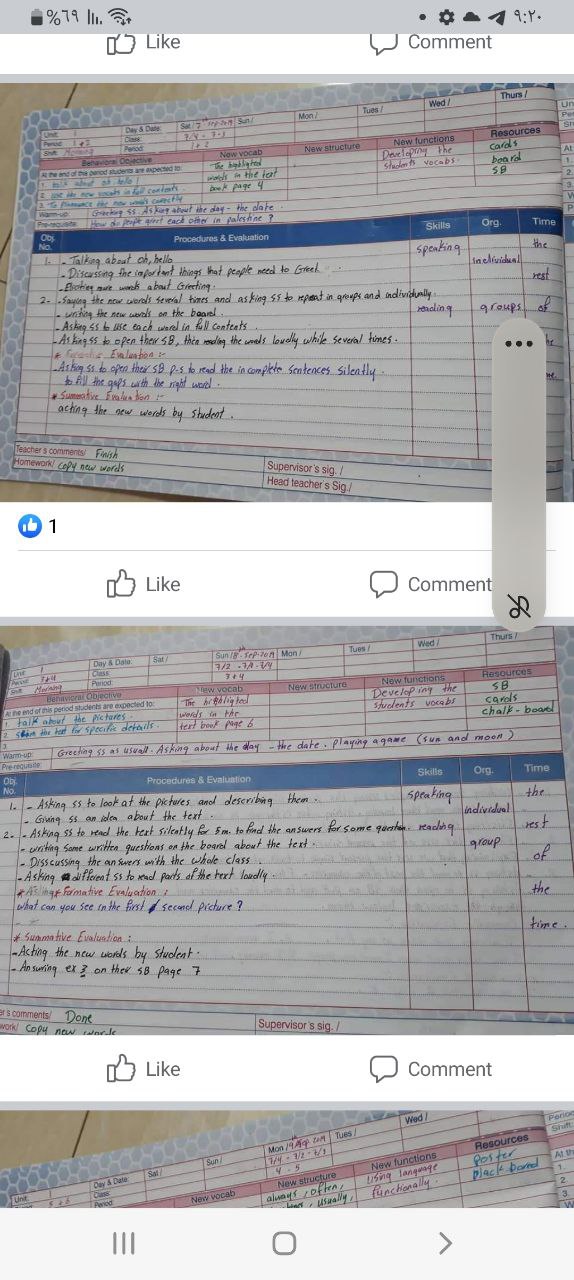 %٦٩ ٩:٢٠
Like Comment
Thurs/
Wed/
Tues/
Mon/
Unit: 1 Day & Date: Sat/ 7th Sep-2019 Sun/
Period: 1+2 Class: 7/4 - 7-3
Shift: Morning Period: 1+2
Behavioral Objective New vocab New structure New functions Resources
At the end of this period students are expected to: The highlighted Developing the cards
1. talk about oh, hello! words in the text students vocabs. board
2. use the new vocabs in full contents. book page 4 SB
3. To pronounce the new words correctly
Warm-up: Greeting ss. Asking about the day - the date.
Pre-requisite: How do people greet each other in palestine ?
Obj. No. Procedures & Evaluation Skills Org. Time
1. - Talking about oh, hello speaking individual the
- Discussing the important things that people need to Greet rest
- more words about Greeting.
2- - Saying the new words several times and asking ss to repeat in groups and individually. reading groups of
- writing the new words on the board.
- Asking ss to use each word in full contents.
- Asking ss to open their SB, then reading the words loudly while several times.
* Evaluation :-
- Asking ss to open their SB p-5 to read the incomplete sentences silently.
to fill the gaps with the right word.
* Summative Evaluation :-
acting the new words by student.
Teacher's comments/ Finish
Homework/ copy new words
Supervisor's sig. /
Head teacher's Sig./
1
Like Comment
Thurs/
Wed/
Tues/
Unit: 1 Day & Date: Sat/ Sun/8th-Sep-2019 Mon/
Period: 3+4 Class:
Shift: Morning Period: 3+4
Behavioral Objective New vocab New structure New functions Resources
At the end of this period students are expected to: The highlighted Developing the SB
1. talk about the pictures. words in the students vocabs cards
2. scan the text for specific details. text book page 6 chalk-board
3.
Warm-up: Greeting ss as usuall. Asking about the day - the date. playing a game (sun and moon)
Pre-requisite:
Obj. No. Procedures & Evaluation Skills Org. Time
1. - Asking ss to look at the pictures and describing them. speaking the
- Giving ss an idea about the text. individual
2. - Asking ss to read the text silently for 5m. to find the answers for some question. reading rest
- writing some written questions on the board about the text. group
- Disscussing the answers with the whole class. of
- Asking different ss to read parts of the text loudly.
* Formative Evaluation : the
what can you see in the first second picture ?
time.
* Summative Evaluation :
- Acting the new words by student.
- Ansuring ex 3 on their SB page 7
er's comments/ Done
work/ copy new words
Supervisor's sig. /
Like Comment
Wed/
Tues/
Mon/9th Sep. 2019
Sun/
Unit: Day & Date: Sat/ 7/4 - 7/2 - 7/3
5+6 Class: 4-5
Period:
New vocab New structure New functions Resources
always, often, using language poster
usually, functionally. black-bored